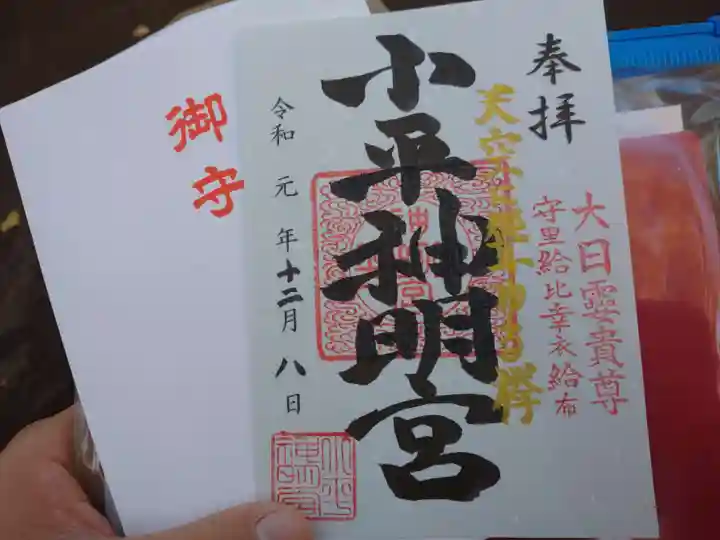 奉拝
大日孁貴尊
守里給比幸衣給布
小平神明宮
令和元年十二月八日
御守